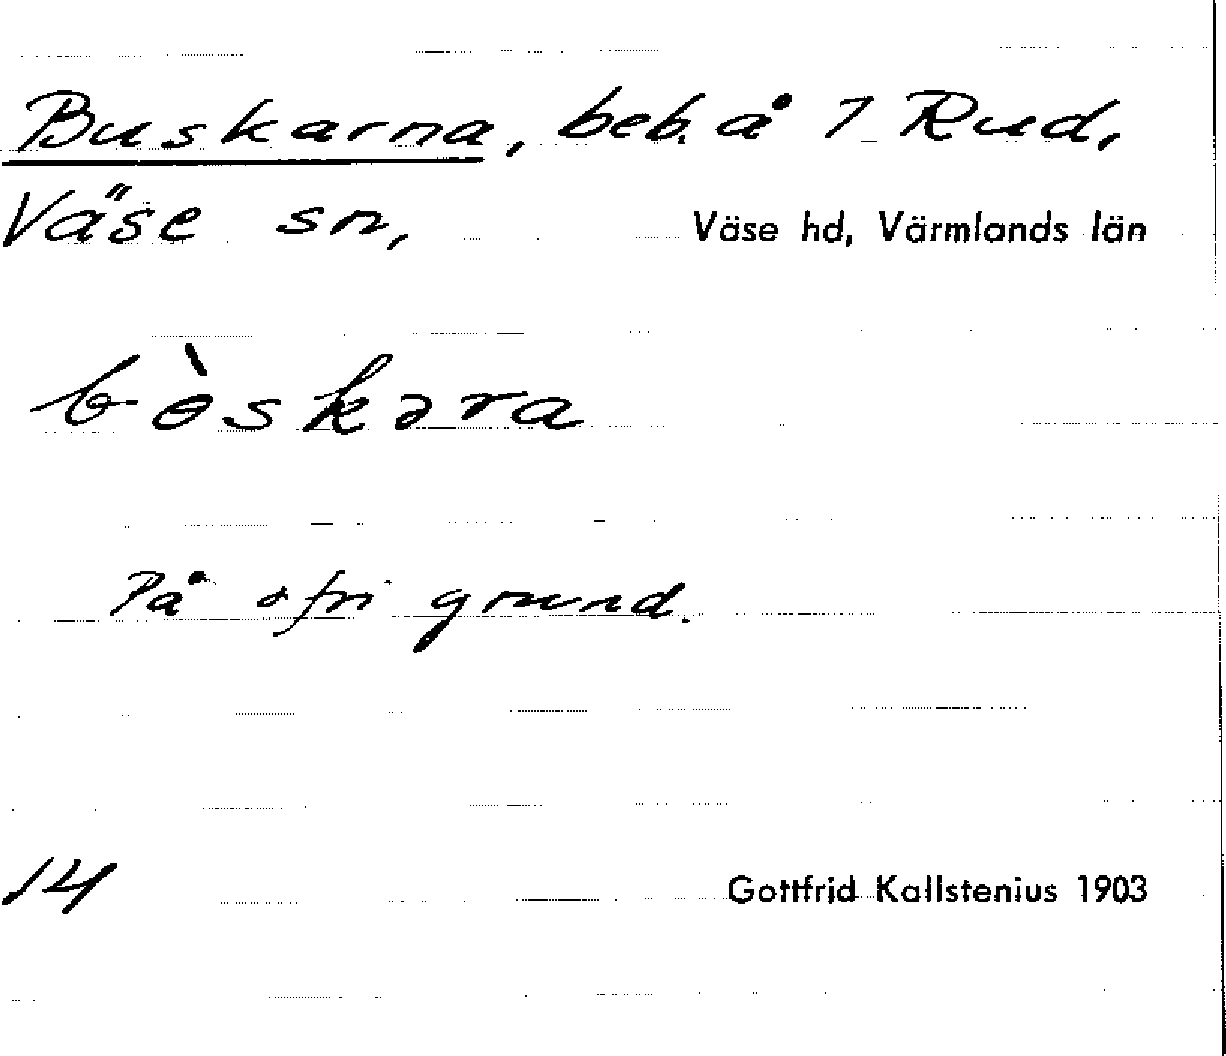 Buskarna, beb. å 1 Rud,
Väse sn, Väse hd, Värmlands län
bɵ̀skəra
På ofri grund.
14 Gottfrid Kallstenius 1903